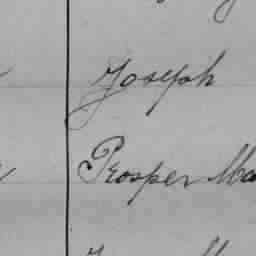 Joseph
Prosper